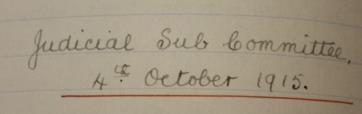 Judicial Sub Committee,
4th October 1915.